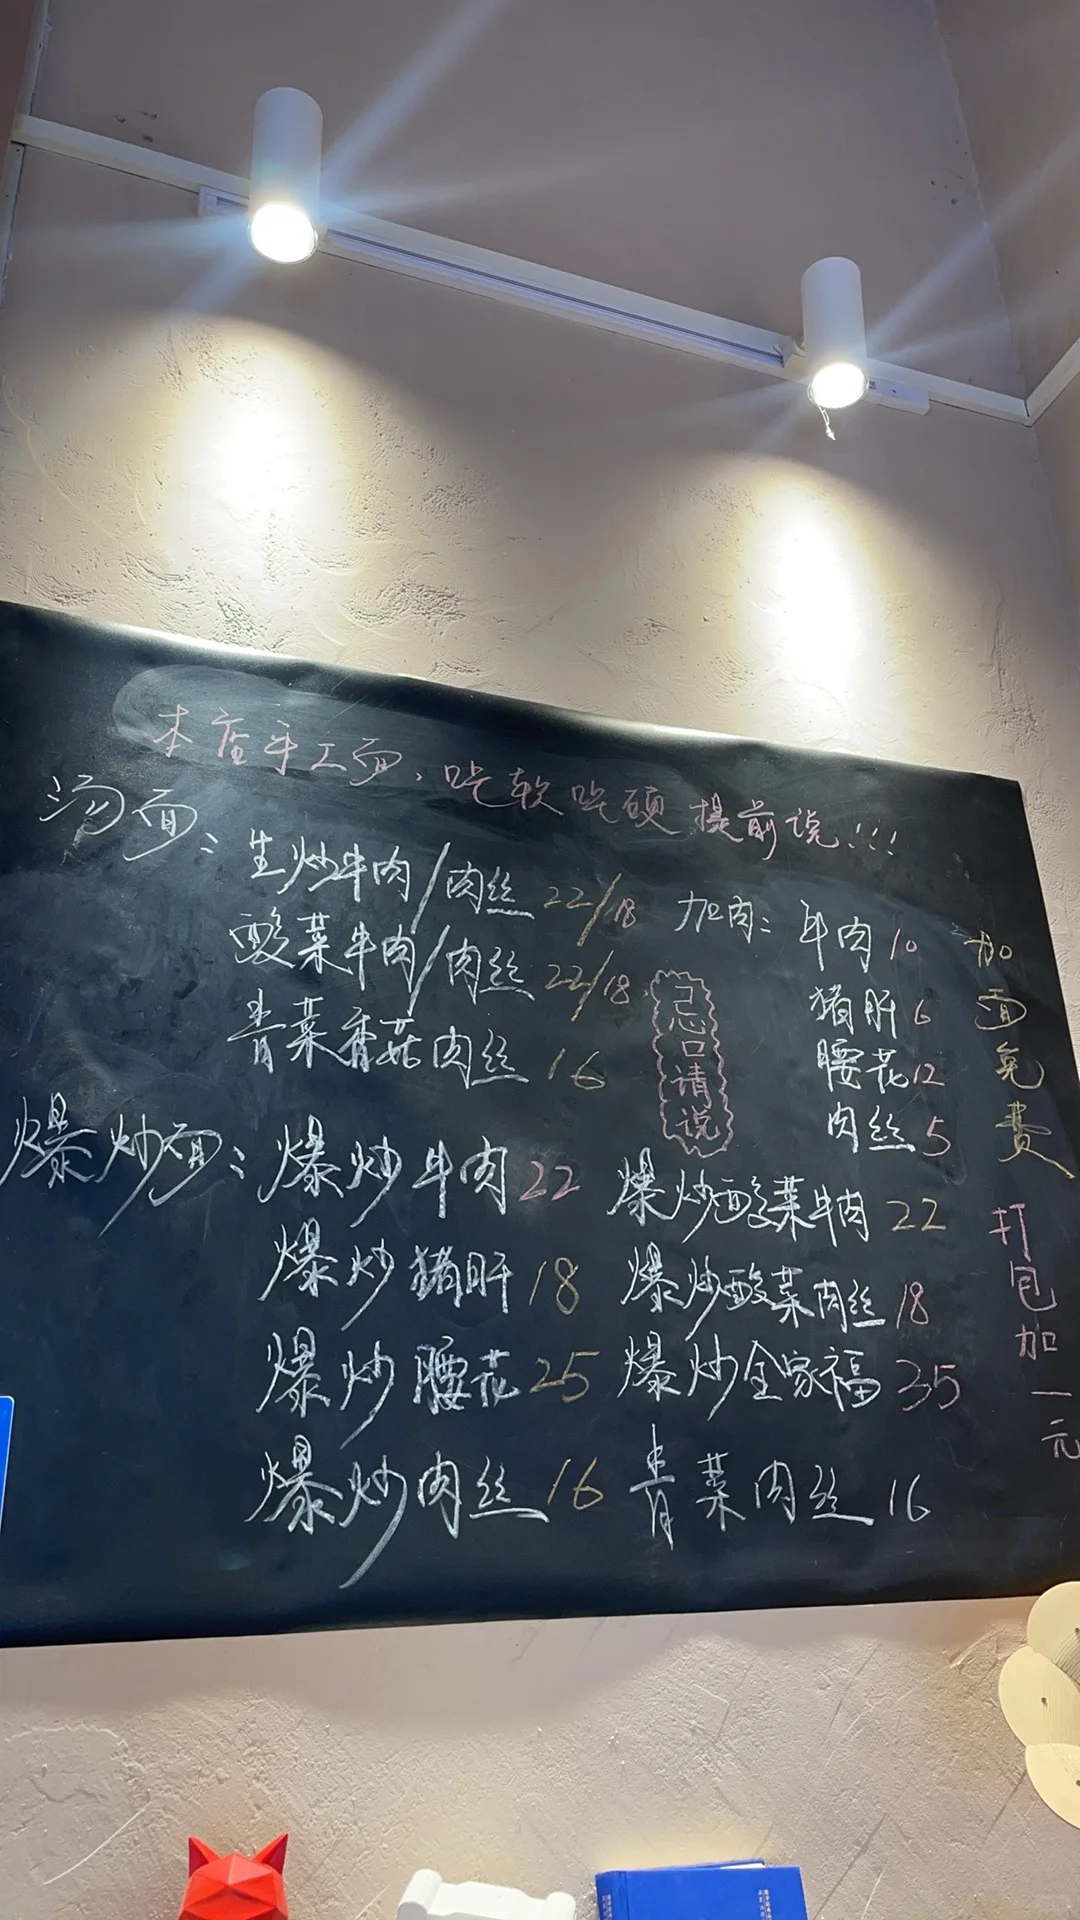 本店手工面,吃软吃硬 提前说!!!
汤面:
生炒牛肉/肉丝 22/18
酸菜牛肉/肉丝 22/18
青菜香菇肉丝 16
加肉: 牛肉 10
猪肝 6
腰花 12
肉丝 5
忌口请说
加面免费
打包加一元
爆炒面:
爆炒牛肉 22
爆炒猪肝 18
爆炒腰花 25
爆炒肉丝 16
爆炒酸菜牛肉 22
爆炒酸菜肉丝 18
爆炒全家福 35
青菜肉丝 16